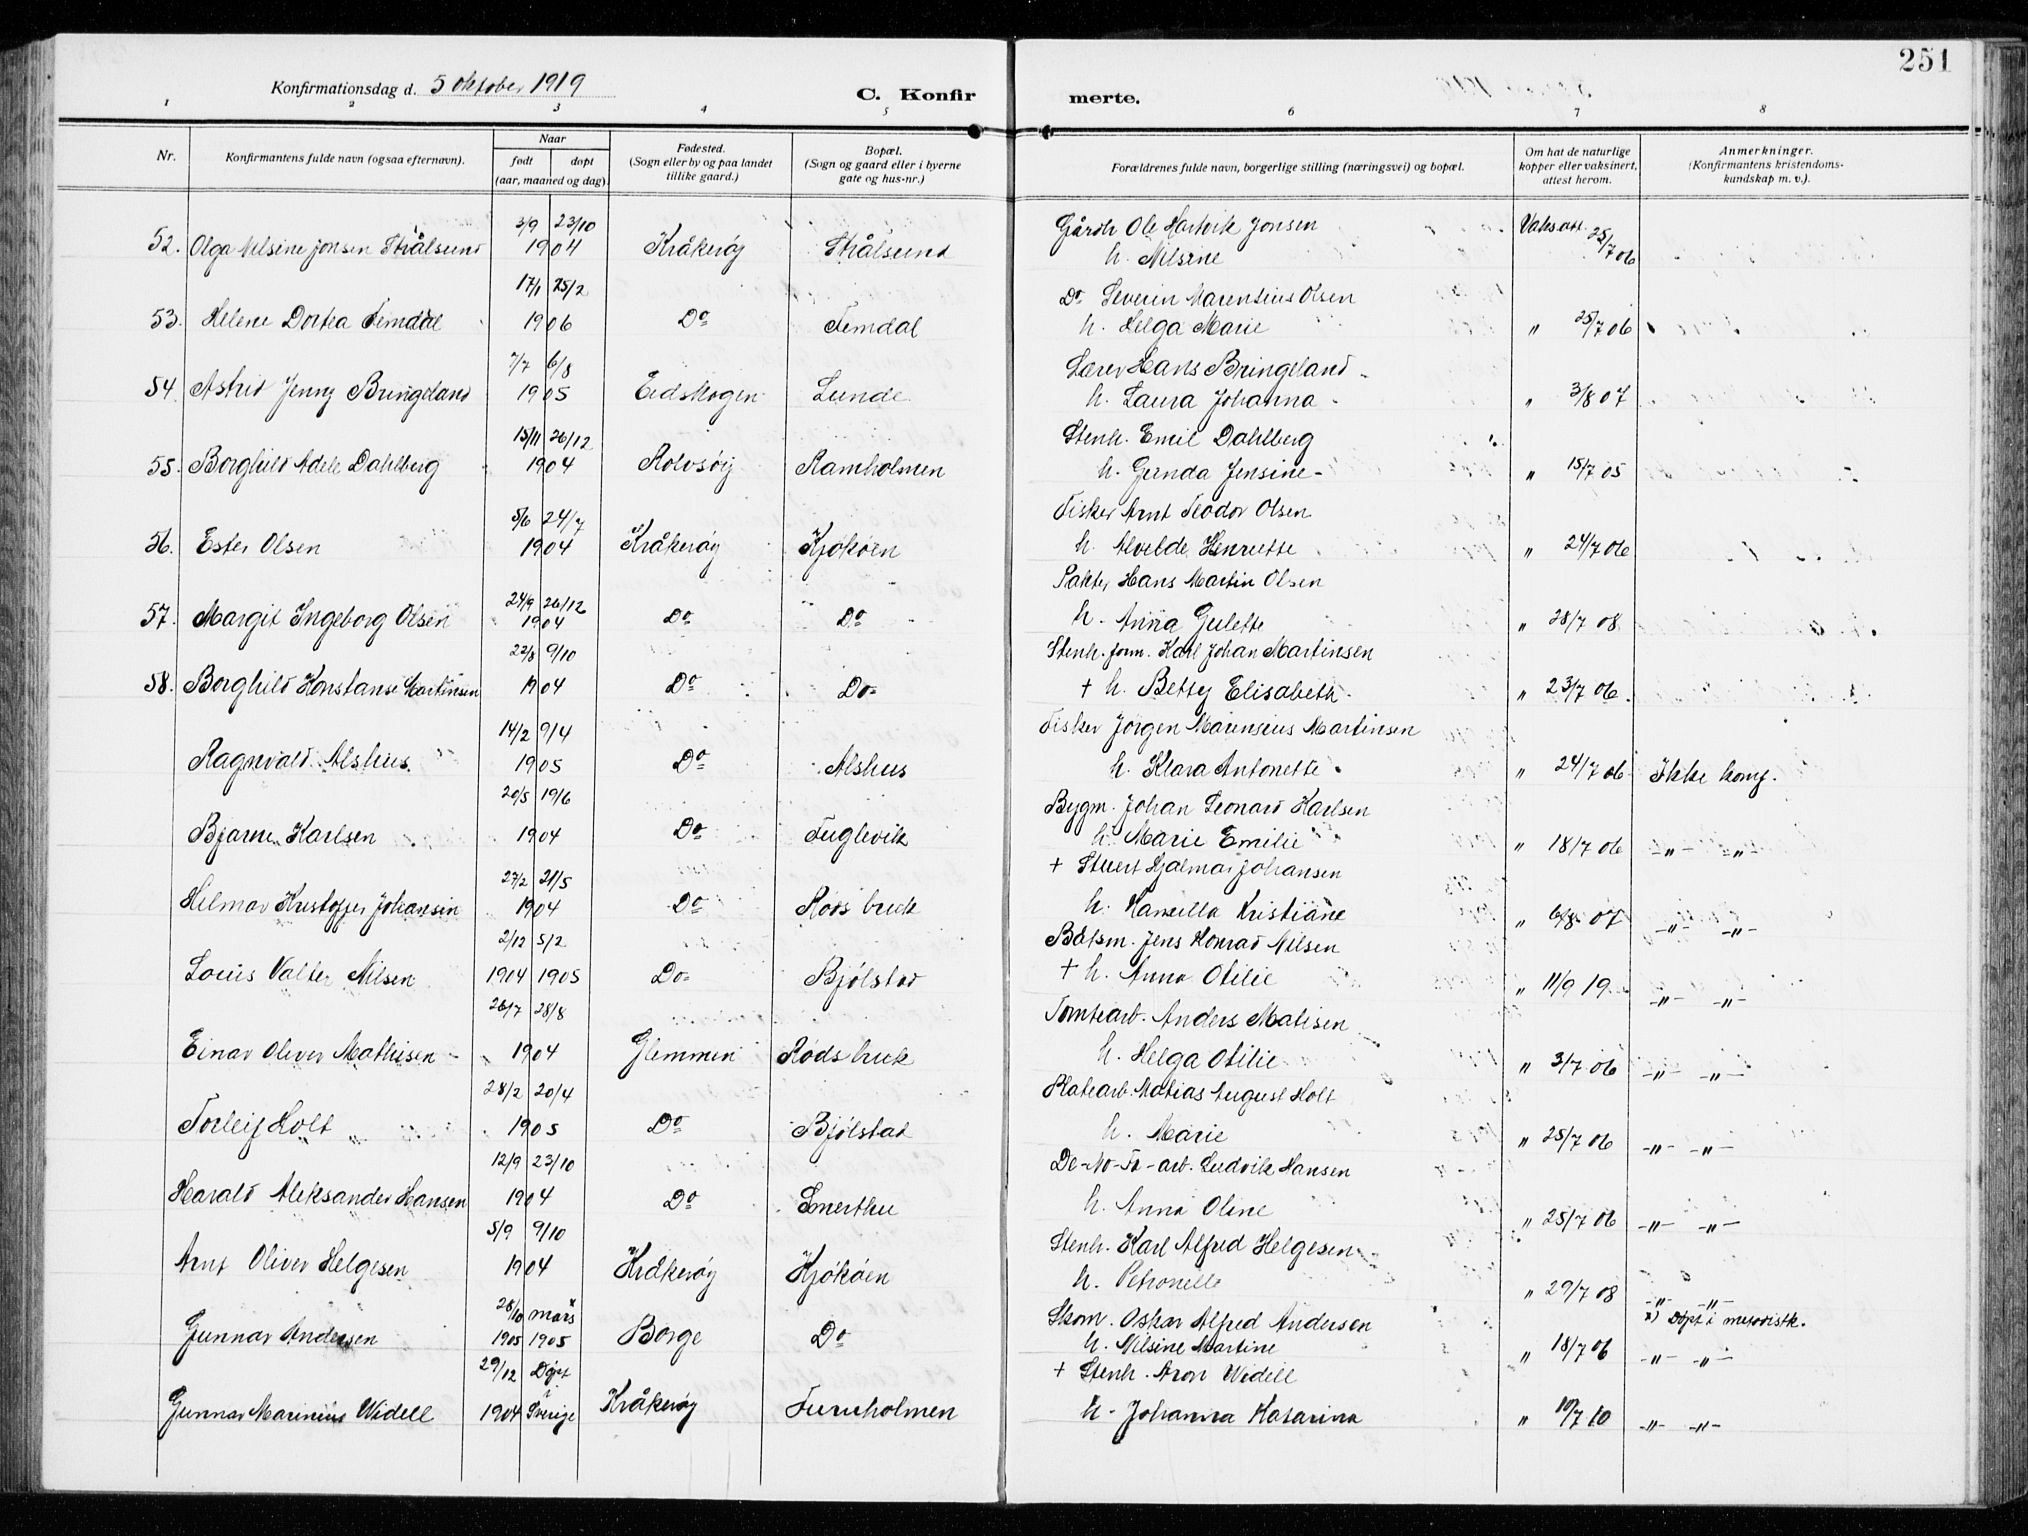 251
Konfirmationsdag d. 5 oktober 1919
C. Konfirmerte.
1 2 3 4 5 6 7 8
Nr.
Konfirmantens fulde navn (ogsaa efternavn).
Naar
født døpt
(aar, maaned og dag).
Fødested.
(Sogn eller by og paa landet
tillike gaard.)
Bopæl.
(Sogn og gaard eller i byerne
gate og hus-nr.)
Forældrenes fulde navn, borgerlige stilling (næringsvei) og bopæl.
Om hat de naturlige
kopper eller vaksinert,
attest herom.
Anmerkninger.
(Konfirmantens kristendoms-
kundskap m. v.).
3/9 23/10 Gårdbr Ole Hartvik Jonsen Vaks att.
52. Olga Nilsine Jonsen Strålsund 1904 Kråkerøy Strålsund h. Nilsine 25/7 06
17/1 25/2 Do Severin Marentius Olsen
53. Helene Dortea Femdal 1906 Do Femdal h. Helga Marie " 25/7 06
7/7 6/8 Lærer Hans Bringeland
54. Astrid Jenny Bringeland 1905 Eidskogen Lunde h. Laura Johanna " 3/8 07
15/11 26/12 Stenh. Emil Dahlberg
55. Borghild Adele Dahlberg 1904 Rolvsøy Ramholmen h. Gerda Jensine " 15/7 05
5/6 24/7 Fisker Arnt Teodor Olsen
56. Ester Olsen 1904 Kråkerøy Kjøkøen h. Alvilde Henriette " 24/7 06
24/9 26/12 Pakter Hans Martin Olsen
57. Margit Ingeborg Olsen 1904 Do Do h. Anna Gulette " 28/7 08
22/8 9/10 Stenh. form. Karl Johan Martinsen
58. Borghild Konstanse Martinsen 1904 Do Do + h. Betty Elisabeth " 23/7 06
14/2 9/4 Fisker Jørgen Marensius Martinsen
Ragnvald Alshus 1905 Do Alshus h. Klara Antonette " 24/7 06 Ikke konf.
20/5 19/6 Bygm. Johan Leonard Karlsen
Bjarne Karlsen 1904 Do Fuglevik h. Marie Emilie " 18/7 06 -"- -"-
27/2 21/5 + Stuert Hjalmar Johansen
Hilmar Kristoffer Johansen 1904 Do Røds bruk h. Kamilla Kristiane " 6/8 07 -"- -"-
2/12 5/2 Båtsm. Jens Konrad Nilsen
Louis Valter Nilsen 1904 1905 Do Bjølstad + h. Anna Otilie " 11/9 19 -"- -"-
26/7 28/8 Tomtearb. Anders Matisen
Einar Oliver Mathisen 1904 Glemmen Røds bruk h. Helga Otilie " 3/7 06 -"- -"-
28/2 20/4 Platearb. Matias August Holt
Torleif Holt 1905 Do Bjølstad h. Marie " 25/7 06 -"- -"-
12/9 23/10 De-No-Fa-arb. Ludvik Hansen
Harald Aleksander Hansen 1904 Do Smerthu h. Anna Oline " 25/7 06 -"- -"-
5/9 9/10 Stenh. Karl Alfred Helgesen
Arnt Oliver Helgesen 1904 Kråkerøy Kjøkøen h. Petronelle " 29/7 08 -"- -"-
28/10 mars x Skom. Oskar Alfred Andersen x) Døpt i metodistk.
Gunnar Andersen 1905 1905 Borge Do h. Nilsine Martine " 18/7 06 -"- -"-
29/12 Døpt i + Stenh. Aron Widell
Gunnar Marinius Widell 1904 Sverige Kråkerøy Furuholmen h. Johanna Katarina " 10/7 10 -"- -"-